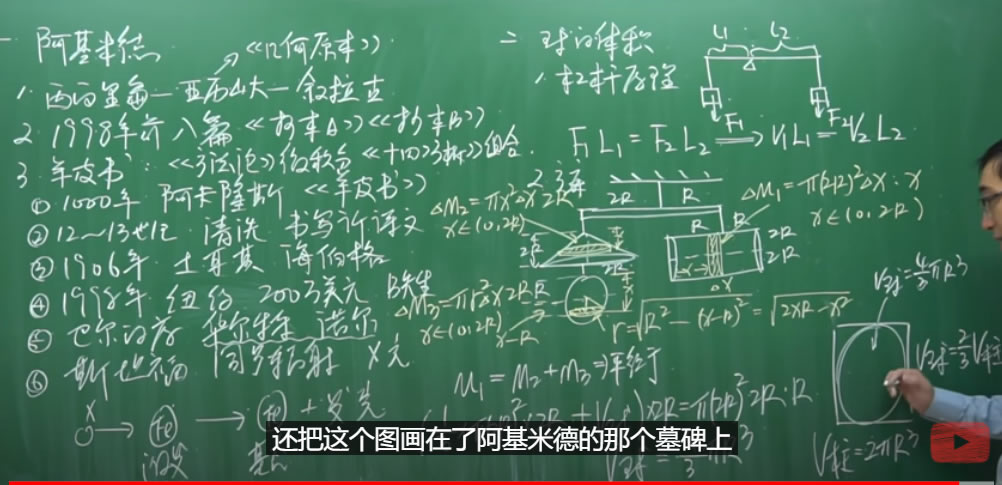 一 阿基米德
《几何原本》
1. 西西里岛一亚历山大一叙拉古
2. 1998年前 八篇 《抄本A》《抄本B》
3. 羊皮书:《方法论》微积分《十四巧板》组合.
① 1000年 阿卡隆斯 《羊皮书》
② 12~13世纪 清洗 书写祈祷文
③ 1906年 土耳其 海伯格
④ 1998年 纽约 200万美元 B先生
⑤ 巴尔的摩 诺尔
⑥ 斯坦福 同步辐射 X光
X → Fe → Fe + 发光
二 球的体积
1. 杠杆原理
L1 L2
F1 F2
F1L1 = F2L2 ⟹ V1L1 = V2L2
2R R
△M2 = πx²△x 2R
x∈(0,2R)
△M1 = π(2R)²△x·x
x∈(0,2R)
2R 2R
R 2R 2R
△x
△M3 = πr²△x 2R
x∈(0,2R)
x-R
r = √R² - (x-R)² = √2xR - x²
M1 = M2 + M3 ⇒
2R = π(2R)² 2R·R
V球 = 4/3 πR³
V球 = 2/3 V柱
V柱 = 2πR³
还把这个图画在了阿基米德的那个墓碑上